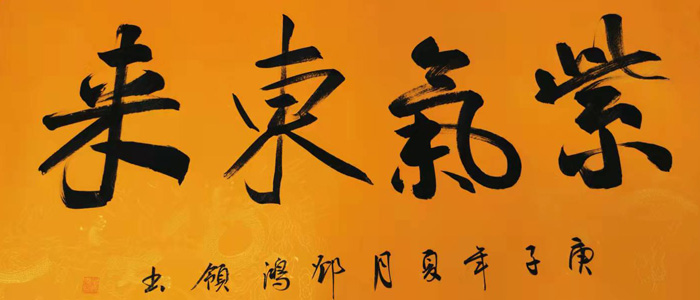 紫氣東来
庚子年夏月邓鴻領书